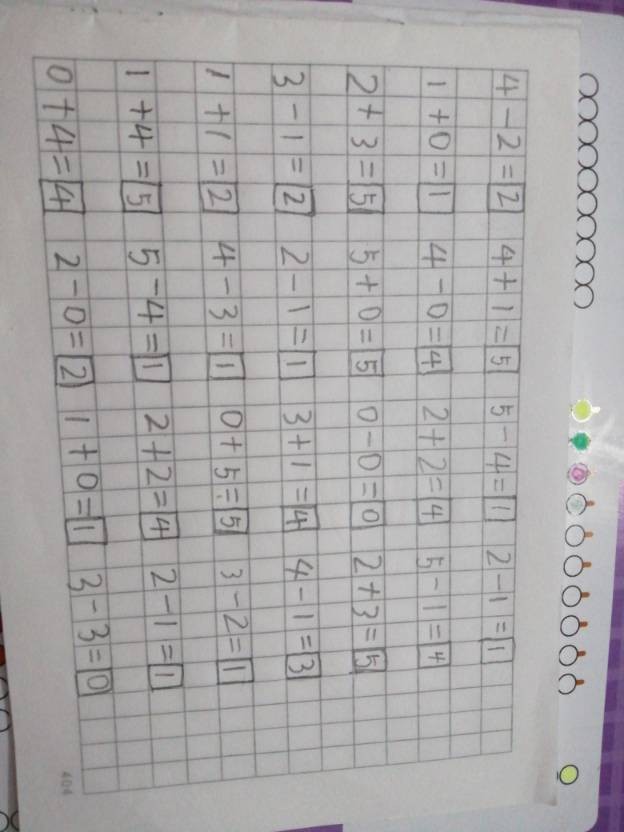 4-2=2 4+1=5 5-4=1 2-1=1
1+0=1 4-0=4 2+2=4 5-1=4
2+3=5 5+0=5 0-0=0 2+3=5
3-1=2 2-1=1 3+1=4 4-1=3
1+1=2 4-3=1 0+5=5 3-2=1
1+4=5 5-4=1 2+2=4 2-1=1
0+4=4 2-0=2 1+0=1 3-3=0
404